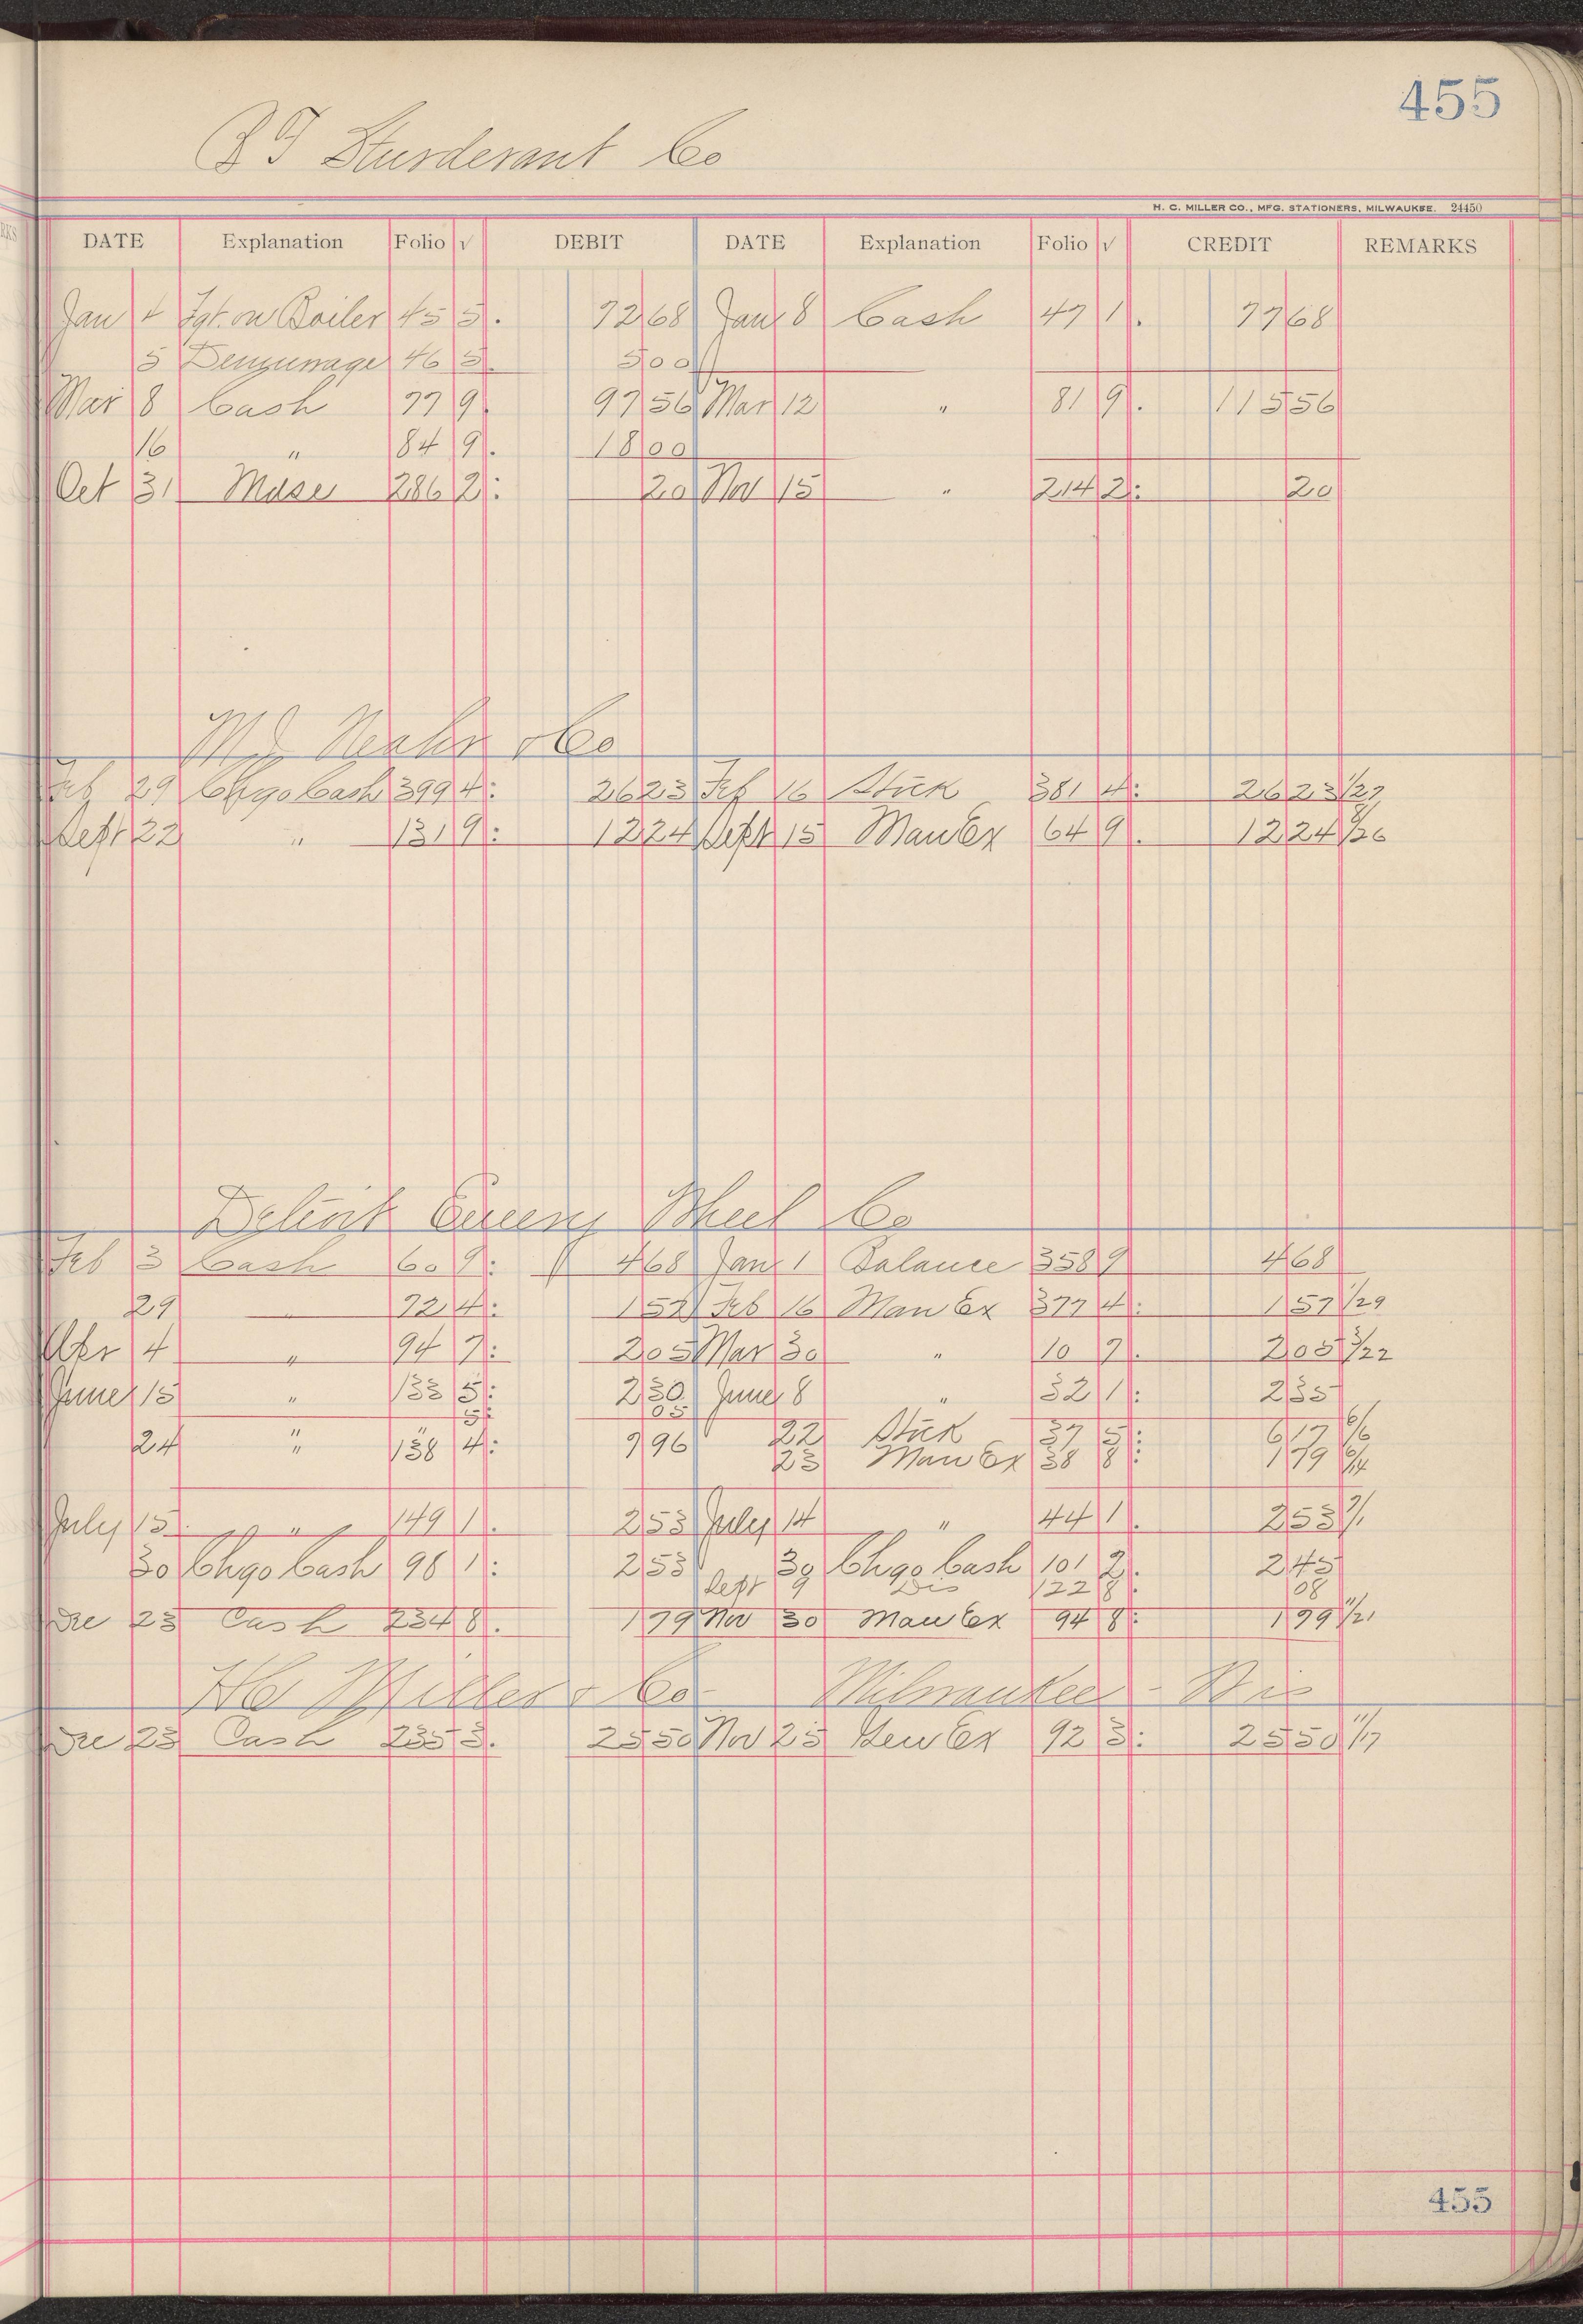 455
B F Sturdevant Co
H. C. MILLER CO., MFG. STATIONERS, MILWAUKEE. 24450
DATE Explanation Folio √ DEBIT DATE Explanation Folio √ CREDIT REMARKS
Jan 4 Fgt. on Boiler 45 5. 72 68 Jan 8 Cash 47 1. 77 68
5 Demurrage 46 5. 5 00
Mar 8 Cash 77 9. 97 56 Mar 12 " 81 9. 115 56
16 " 84 9. 18 00
Oct 31 Mdse 286 2: 20 Nov 15 " 214 2: 20
& Co
Feb 29 Chgo Cash 399 4: 26 23 Feb 16 Stick 381 4: 26 23 1/27
Sept 22 " 131 9: 12 24 Sept 15 Man Ex 64 9. 12 24 9/26
Detroit Emery Wheel Co
Feb 3 Cash 60 9: 4 68 Jan 1 Balance 358 9 4 68
29 72 4: 1 57 Feb 16 Man Ex 377 4: 1 57 1/29
Apr 4 " 94 7: 2 05 Mar 30 " 10 7. 2 05 3/22
June 15 " 133 5: 2 30 June 8 " 32 1: 2 35
" 5: 05
24 " 138 4: 7 96 22 Stick 37 5: 6 17 6/6
23 Man Ex 38 8: 1 79 6/14
July 15 " " 149 1. 2 53 July 14 " 44 1. 2 53 7/1
30 Chgo Cash 98 1: 2 53 30 Chgo Cash 101 2. 2 45
Sept 9 Dis 122 8. 08
Dec 23 Cash 234 8. 1 79 Nov 30 Man Ex 94 8: 1 79 11/21
H C Miller & Co - Milwaukee - Wis
Dec 23 Cash 235 3. 25 50 Nov 25 Gen Ex 92 3: 25 50 11/17
455